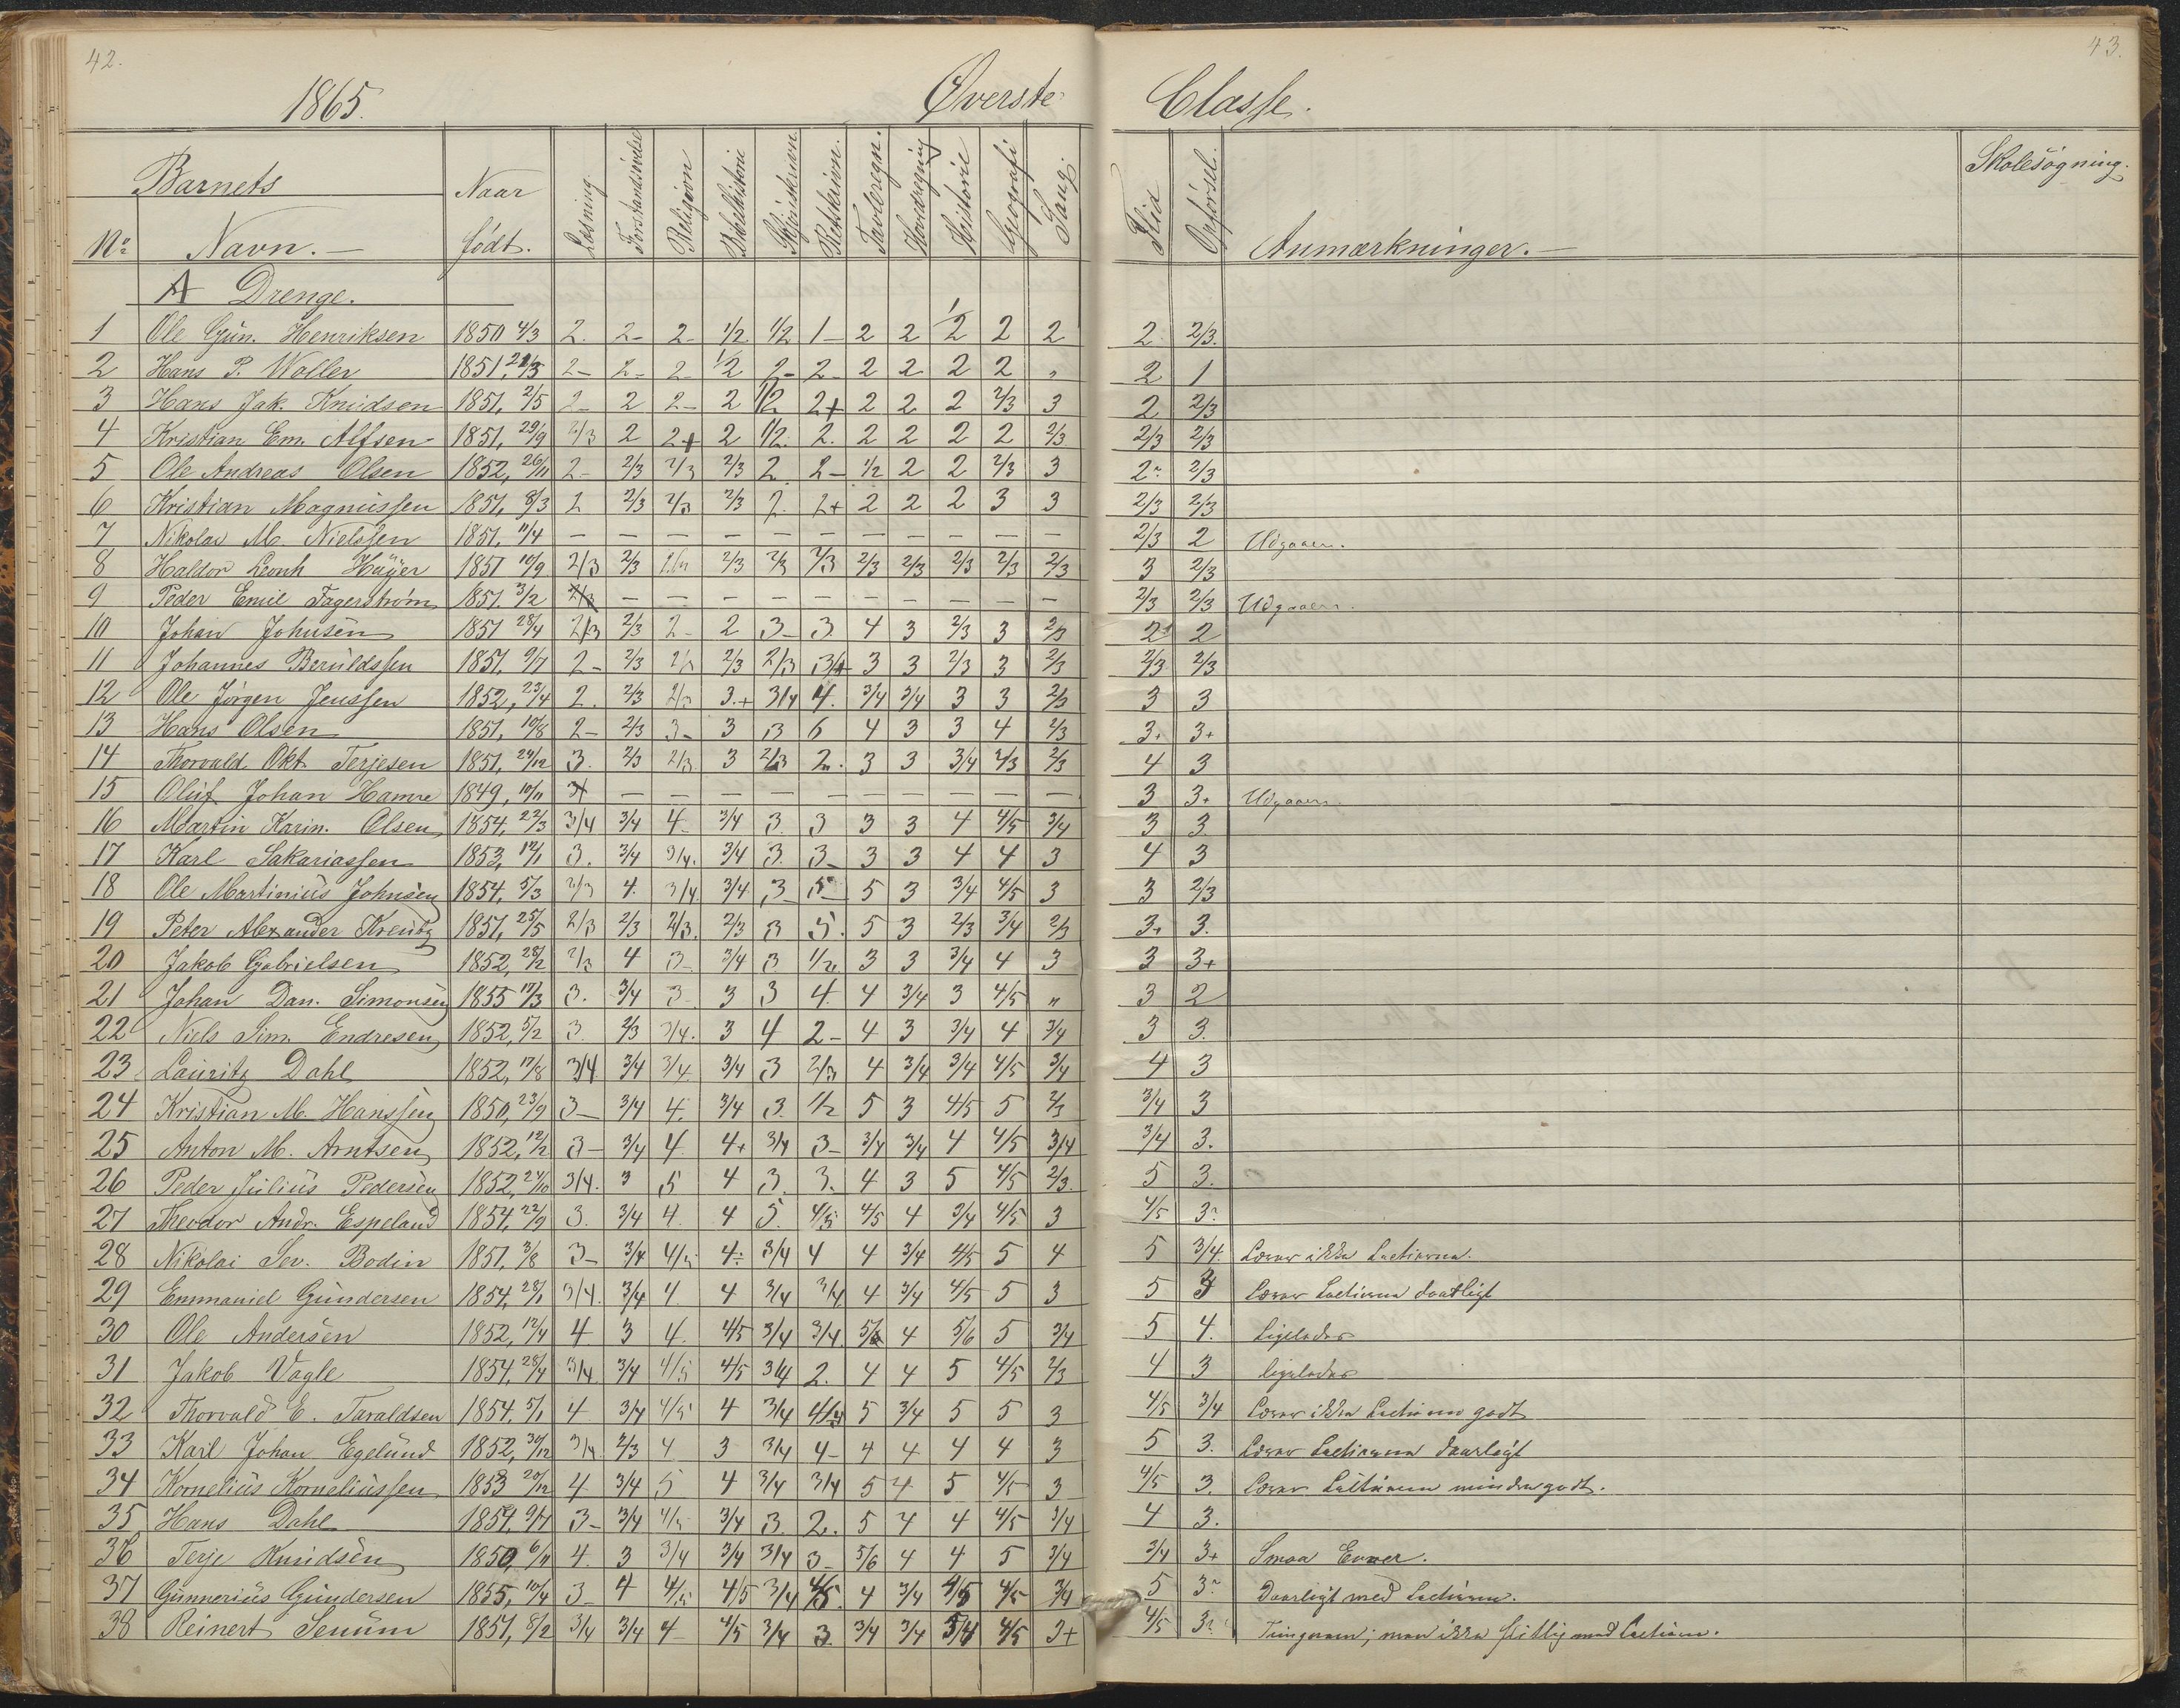 42.
43.
1865.
Øverste Classe.
Barnets
Naar
Skolesøgning.
No Navn. født. Læsning. Forstandsøvelse Religion Bibelhistorie Skjönskrivn. Retskrivn. Tavleregn. Hovedregning Historie Geografi Sang. Flid Opførsel. Anmærkninger.
A Drenge.
1 Ole Gun. Henriksen 1850 4/3 2. 2- 2- 1/2 1/2 1- 2 2 1/2 2 2 2 2/3.
2 Hans P. Woller 1851, 2- 2- 2- 1/2 2- 2- 2 2 2 2 " 2 1
3 Hans Jak. Knudsen 1851, 2/5 2- 2 2- 2 1/2 2+ 2 2 2 2/3 3 2 2/3
4 Kristian Em. Alfsen 1851, 29/9 2/3 2 2+ 2 1/2. 2. 2 2 2 2 2/3 2/3 2/3
5 Ole Andreas Olsen 1852, 26/11 2- 2/3 2/3 2/3 2. 2- 1/2 2 2 2/3 3 2 2/3
6 Kristian Magnussen 1851, 8/3 2 2/3 2/3 2/3 2. 2+ 2 2 2 3 3 2/3 2/3
7 Nikolai M. Nielssen 1851, 11/4 - - - - - - - - - - - 2/3 2 Udgaaen.
8 Haldor Leonh Høyer 1851 10/9 2/3 2/3 2/3 2/3 2/3 2/3 2/3 2/3 2/3 2/3 3 2/3
9 Peder Emil Fagerstrøm 1851. 3/2 2/3 - - - - - - - - - - 2/3 2/3 Udgaaen.
10 Johan Johnsen 1851 28/4 2/3 2/3 2- 2 3- 3. 4 3 2/3 3 2/3 2 2
11 Johannes Beruldssen 1851, 9/7 2- 2/3 2/3 2/3 2/3 3/4 3 3 2/3 3 2/3 2/3 2/3
12 Ole Jørgen Jenssen 1852, 23/4 2. 2/3 2/3 3.+ 3/4 4. 3/4 3/4 3 3 2/3 3 3
13 Hans Olsen 1851, 10/8 2- 2/3 3- 3 3 6 4 3 3 4 2/3 3+ 3+
14 Thorvald Okt. Terjesen 1851, 24/12 3. 2/3 2/3. 3 2/3 2. 3 3 3/4 2/3 2/3 4 3
15 Oluf Johan Hamre 1849, 10/11 - - - - - - - - - - 3 3+ Udgaaen.
16 Martin Karin. Olsen 1854, 22/3 3/4 3/4 4- 3/4 3. 3 3 3 4 4/5 3/4 3 3.
17 Karl Sakariassen 1853, 12/1 3. 3/4 3/4. 3/4 3. 3- 3 3 4 4 3 4 3
18 Ole Martinius Johnsen 1854, 5/3 2/3 4. 3/4. 3/4 3- 5- 5 3 3/4 4/5 3 3 2/3
19 Peter Alexander Kreutz 1851, 25/5 2/3 2/3 2/3. 2/3 3 5. 5 3 2/3 3/4 2/3 3+ 3.
20 Jakob Gabrielsen 1852, 28/2 2/3 4 3- 3/4 3 1/2. 3 3 3/4 4 3 3 3+
21 Johan Dan. Simonsen 1855 17/3 3. 3/4 3- 3 3 4. 4 3/4 3 4/5 " 3 2
22 Niels Sim. Endresen 1852, 5/2 3. 2/3 3/4. 3 4 2- 4 3 3/4 4 3/4 3 3.
23 Lauritz Dahl 1852, 17/8 3/4 3/4 3/4. 3/4 3 2/3 4 3/4 3/4 4/5 3/4 4 3
24 Kristian M. Hanssen 1850, 23/9 3- 3/4 4. 3/4 3. 1/2 5 3 4/5 5 2/3 3/4 3
25 Anton M. Arntsen 1852, 12/2 3- 3/4 4 4+ 3/4 3- 3/4 3/4 4 4/5 3/4 3/4 3.
26 Peder Julius Pedersen 1852, 24/10 3/4. 3 5 4 3. 3. 4 3 5 4/5 2/3. 5 3.
27 Theodor Andr. Espeland 1854, 22/9 3. 3/4 4. 4 5. 4/5 4/5 4 3/4 4/5 3 4/5 3
28 Nikolai Sev. Bodin 1851, 3/8 3- 3/4 4/5 4 3/4 4 4 3/4 4/5 5 4 5 3/4. Lærer ikke Lectierne.
29 Emmanuel Gundersen 1854, 28/1 3/4. 3/4 4. 4 3/4 3/4 4 3/4 4/5 5 3 5 3 Lærer Lectierne daarligt
30 Ole Andersen 1852, 12/4 4. 3 4. 4/5 3/4 3/4. 5/6 4 5/6 5 3/4 5 4. Ligeledes
31 Jakob Vagle 1854, 28/4 3/4 3/4 4/5 4/5 3/4 2. 4 4 5 4/5 2/3 4 3 ligeledes
32 Thorvald E. Taraldsen 1854, 5/1 4 3/4 4/5 4 3/4 4/5 5 3/4 5 5 3 4/5 3/4 Lærer ikke Lectierne godt
33 Karl Johan Egelund 1852, 30/12 3/4 2/3 4 3 3/4 4- 4 4 4 4 3 5 3. Lærer Lectierne daarligt
34 Kornelius Korneliussen 1853 20/12 4. 3/4 5 4 3/4 3/4 5 4 5 4/5 3 4/5 3. Lærer Lectierne mindre godt.
35 Hans Dahl 1854, 9/7 3- 3/4 4/5 3/4 3. 2. 5 4 4 4/5 3/4 4 3.
36 Terje Knudsen 1850, 6/11 4. 3 3/4 3/4 3/4 3- 5/6 4 4 5 3/4 3/4 3+ Smaa Evner.
37 Gunnerius Gundersen 1855, 10/4 3- 4 4/5 4/5 3/4 4/5. 4 3/4 4/5 4/5 3/4 5 3 Daarligt med Lectierne.
38 Reinert Senum 1851, 8/2 3/4 3/4 4- 4/5 3/4 3. 3/4 3/4 3/4 4/5 3+ 4/5 3 Tungnem; men ikke flittig med Lectierne.